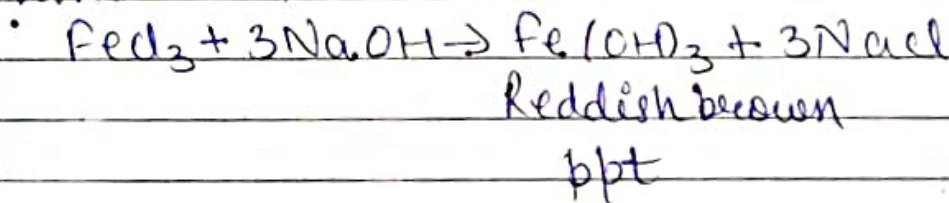 • FeCl₃ + 3NaOH → Fe(OH)₃ + 3NaCl
Reddish brown
ppt